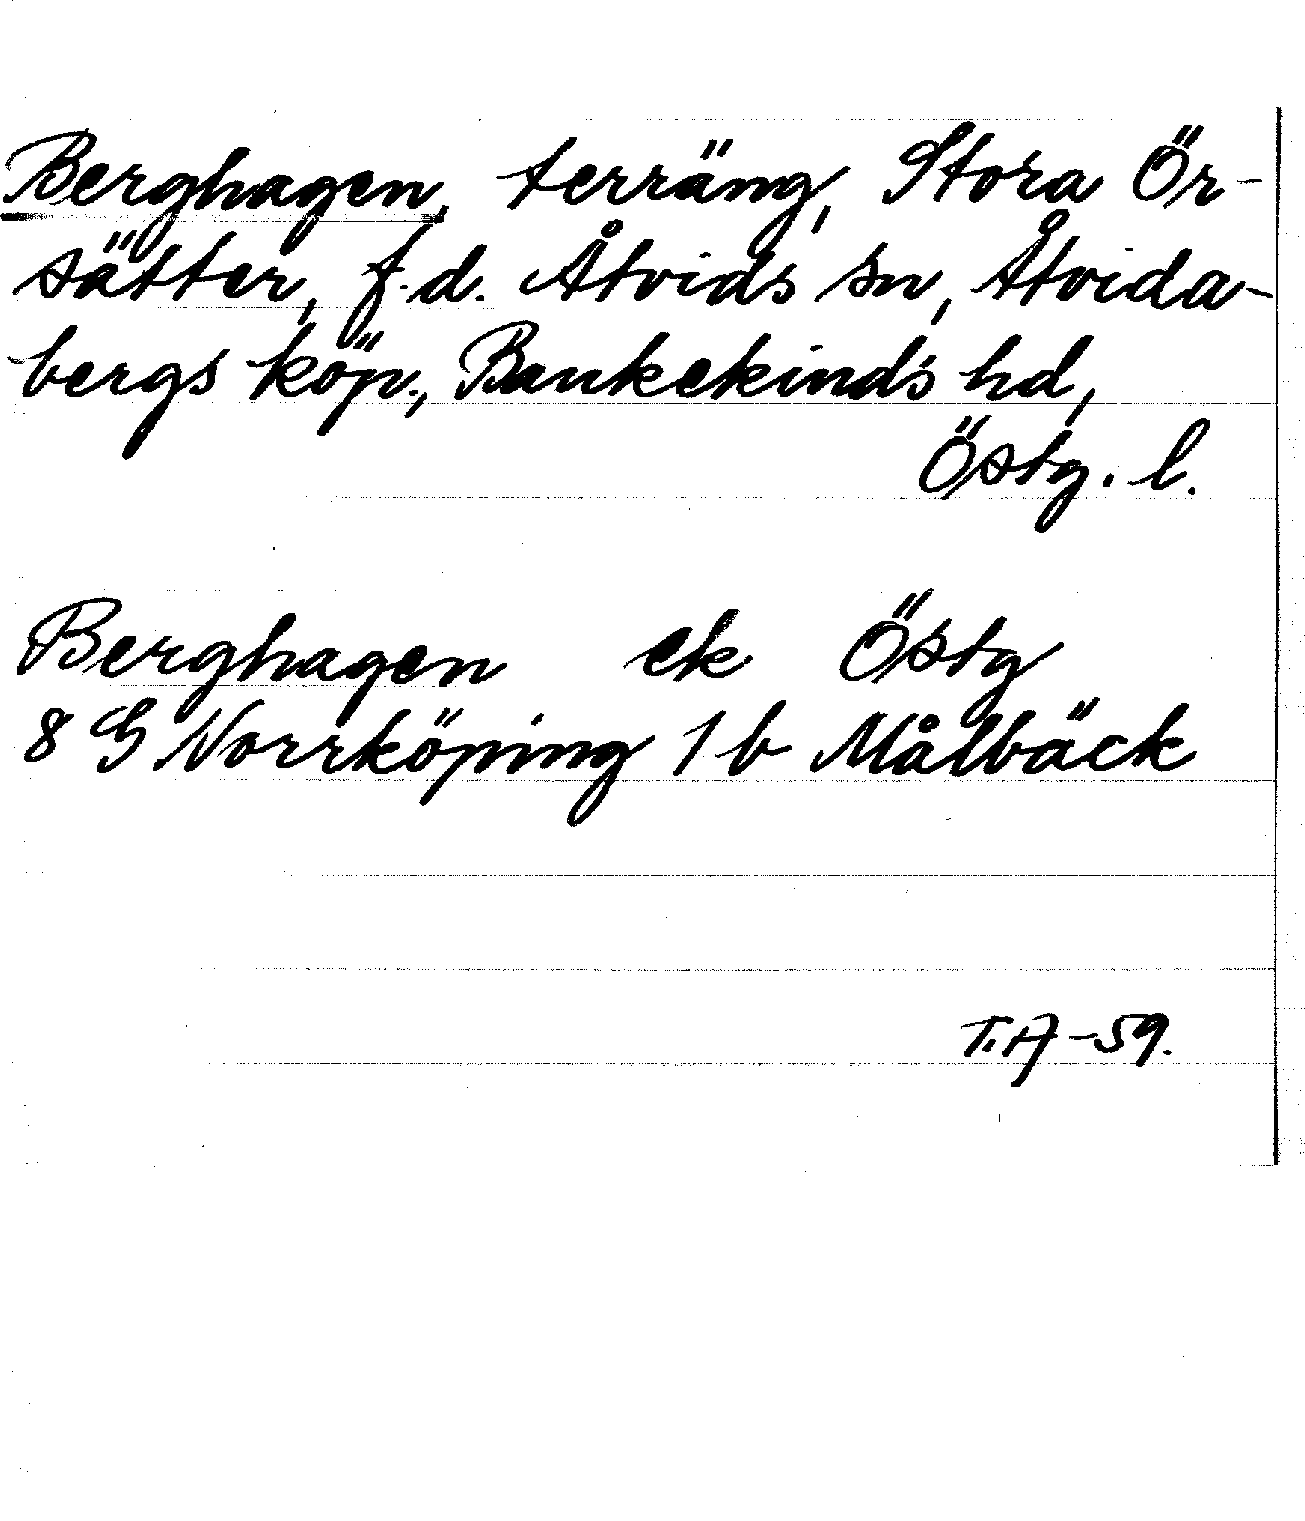 Berghagen, terräng, Stora Ör-
sätter, f.d. Åtvids sn, Åtvida-
bergs köp., Bankekinds hd,
Östg. l.
Berghagen ek Östg
8 G Norrköping 1 b Målbäck
T.A -59.